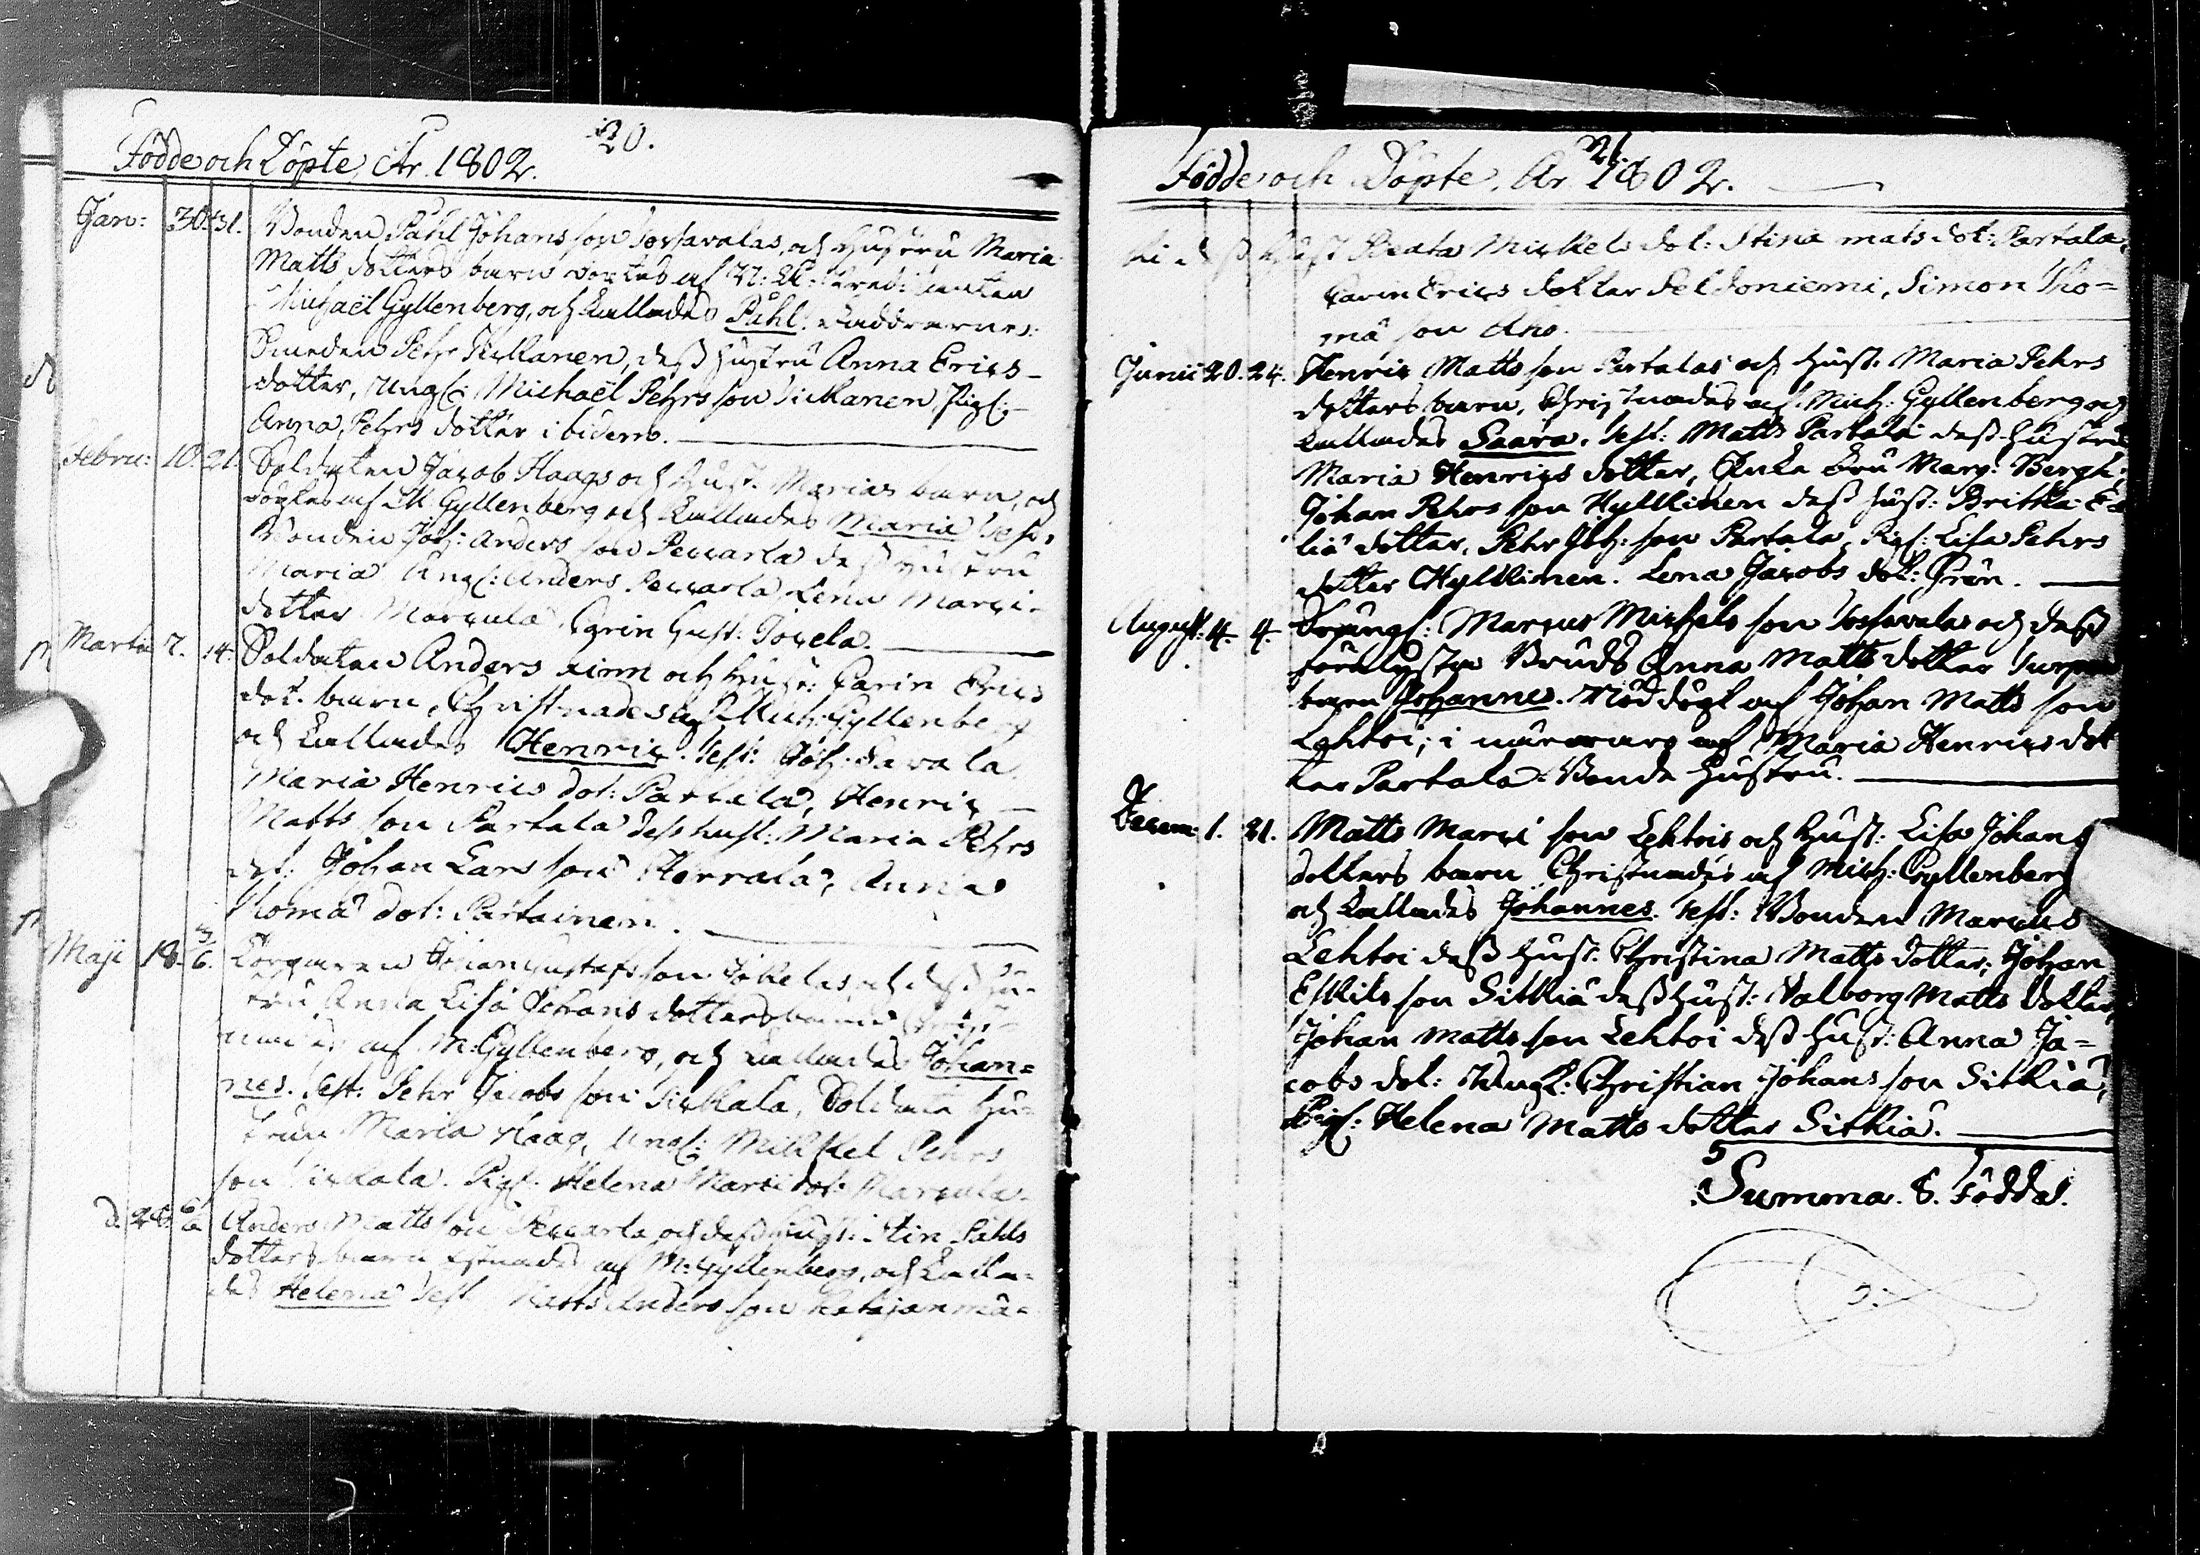 20.
Födde och Döpte, År. 1802.
Jan: 30. 31. Bonden Påhl Johans son Tossavalas, och Hustru Maria
Matts dotters barn döptes af
Michaël Gyllenberg, och kallades Påhl. Faddrarnes:
Smeden Pehr Tickanen, dess hustru Anna Erics-
dotter, Ungk: Michaël Pehrs son Tickanen, Pigk:
Anna Pehrs dotter ibidem.
Febru: 10. 21. Soldaten Jacob Haags och Hust. Marias barn, och
döptes af M Gyllenberg och kallades Maria Test:
Bonden Joh: Anders son Peccarla dess Hustru
Maria Ungk: Anders Peccarla Lena Marci-
dotter Marcula, Carin Hust: Jocela.
Martii 7. 14. Soldaten Anders Finn och Hustr: Carin Erics
dot. barn, Christnades af Mich: Gyllenberg
och kallades Henric. Test: Joh: Savala
Maria Henrics dot: Partala, Henric
Matts son Partala dess hust: Maria Pehrs
dot: Johan Lars son Horrala, Anna
Thoma dot: Partainen.
Maji 18. 3/6. Torparen Johan Gustafs son Jokelas, och dess Hu-
tru Anna Lisa Johans dotters barn Christ-
nades af M: Gyllenberg, och kallades Johan=
nes. Test: Pehr Jacobs son Tickala, Soldats Hu-
trun Maria Haag, Ungk: Mickel Pehrs
son Tickala. Pigk: Helena Marci dot: Marcula.
D. 28. 6/6 Anders Matts son Peccarla och dess Hust: Stin Påhls
dotters barn xstnades af M: Gyllenberg, och kalla-
des Helena Test Matts Anders son Katajanmä-
21.
Födde och Döpte, År 1802.
ki dess Hust Beata Mickels dot: Stina mats dot: Partala,
Carin Erics dotter Seldoniemi, Simon Tho=
mä son Aho.
Junii 20. 24. Henric Matts son Partalas och Hust. Maria Pehrs
dotters barn, Christnades af Mich: Gyllenberg och
kallades Saara. Test: Matts Partala dess Hustru
Maria Henrics dotter, Enke Fru Marg: Bergh,
Johan Pehrs son Hyllkinen dess Hust: Britha E-
liä dotter, Pehr Joh: son Partala, Pigk: Lisa Pehrs
dotter Hyllkinen. Lena Jacobs dot: Grön.
August: 4. 4. Drängk: Marcus Michels son Tossavalas och dess
förelysta Bruds Anna Matts dotter Surp
barn Johannes. Nöd döpt af Johan Matts son
Lehtoi, i närvaro af Maria Henrics dot
ter Partala Bonde Hustru.
Decem: 1. 21. Matts Marci son Lehtois och Hust: Lisa Johans
dotters barn Christnades af Mich: Gyllenberg
och kallades Johannes. Test: Bonden Marcus
Lehtoi dess Hust: Christina Matts dotter, Johan
Eskils son Sitkiä dess Hust: Valborg Matts dotter,
Johan Matts son Lehtoi dess Hust: Anna Ja=
cobs dot: Ungk: Christian Johans son Sitkiä,
Pigk: Helena Matts dotter Sitkiä.
Summa. 8. Födda.